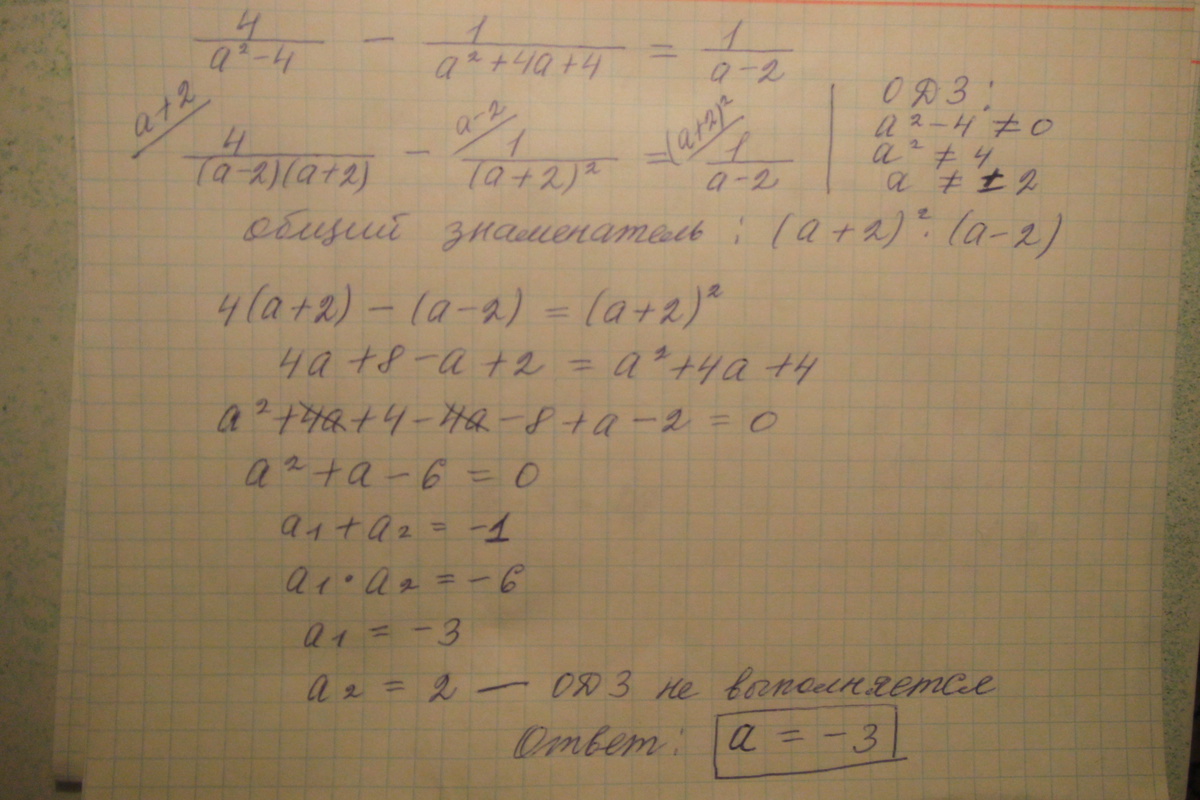 4/(a²-4) - 1/(a²+4a+4) = 1/(a-2)
a+2/ 4/((a-2)(a+2)) - a-2/ 1/(a+2)² = (a+2)²/ 1/(a-2)
ОДЗ:
a²-4 ≠ 0
a² ≠ 4
a ≠ ±2
общий знаменатель: (a+2)²·(a-2)
4(a+2) - (a-2) = (a+2)²
4a+8-a+2 = a²+4a+4
a²+4a+4-4a-8+a-2 = 0
a²+a-6 = 0
a₁+a₂ = -1
a₁·a₂ = -6
a₁ = -3
a₂ = 2 — ОДЗ не выполняется
Ответ: a = -3